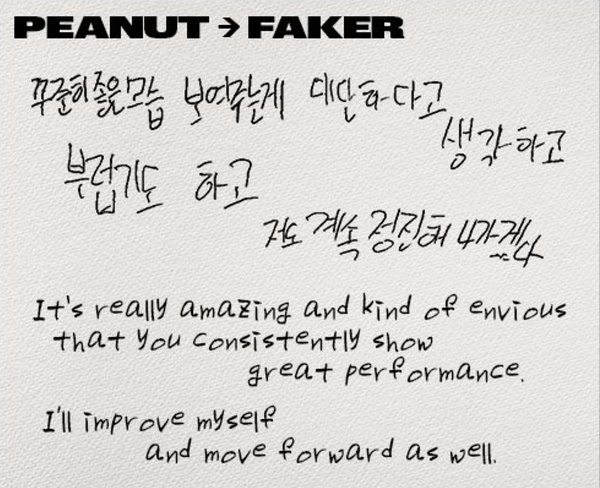 PEANUT → FAKER
꾸준히 좋은모습 보여주는게 대단하다고
생각하고
부럽기도 하고
저도 계속 정진해 나가겠다
It's really amazing and kind of envious
that you consistently show
great performance.
I'll improve myself
and move forward as well.